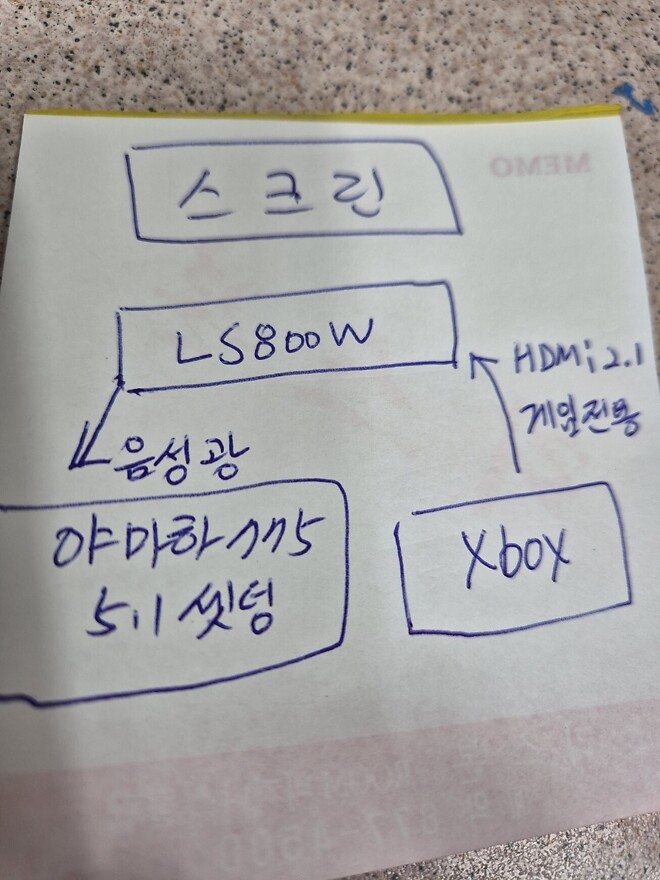 MEMO
스크린
LS800W
HDMi 2.1
게임전용
음성광
야마하 775
5.1 씻텅
Xbox